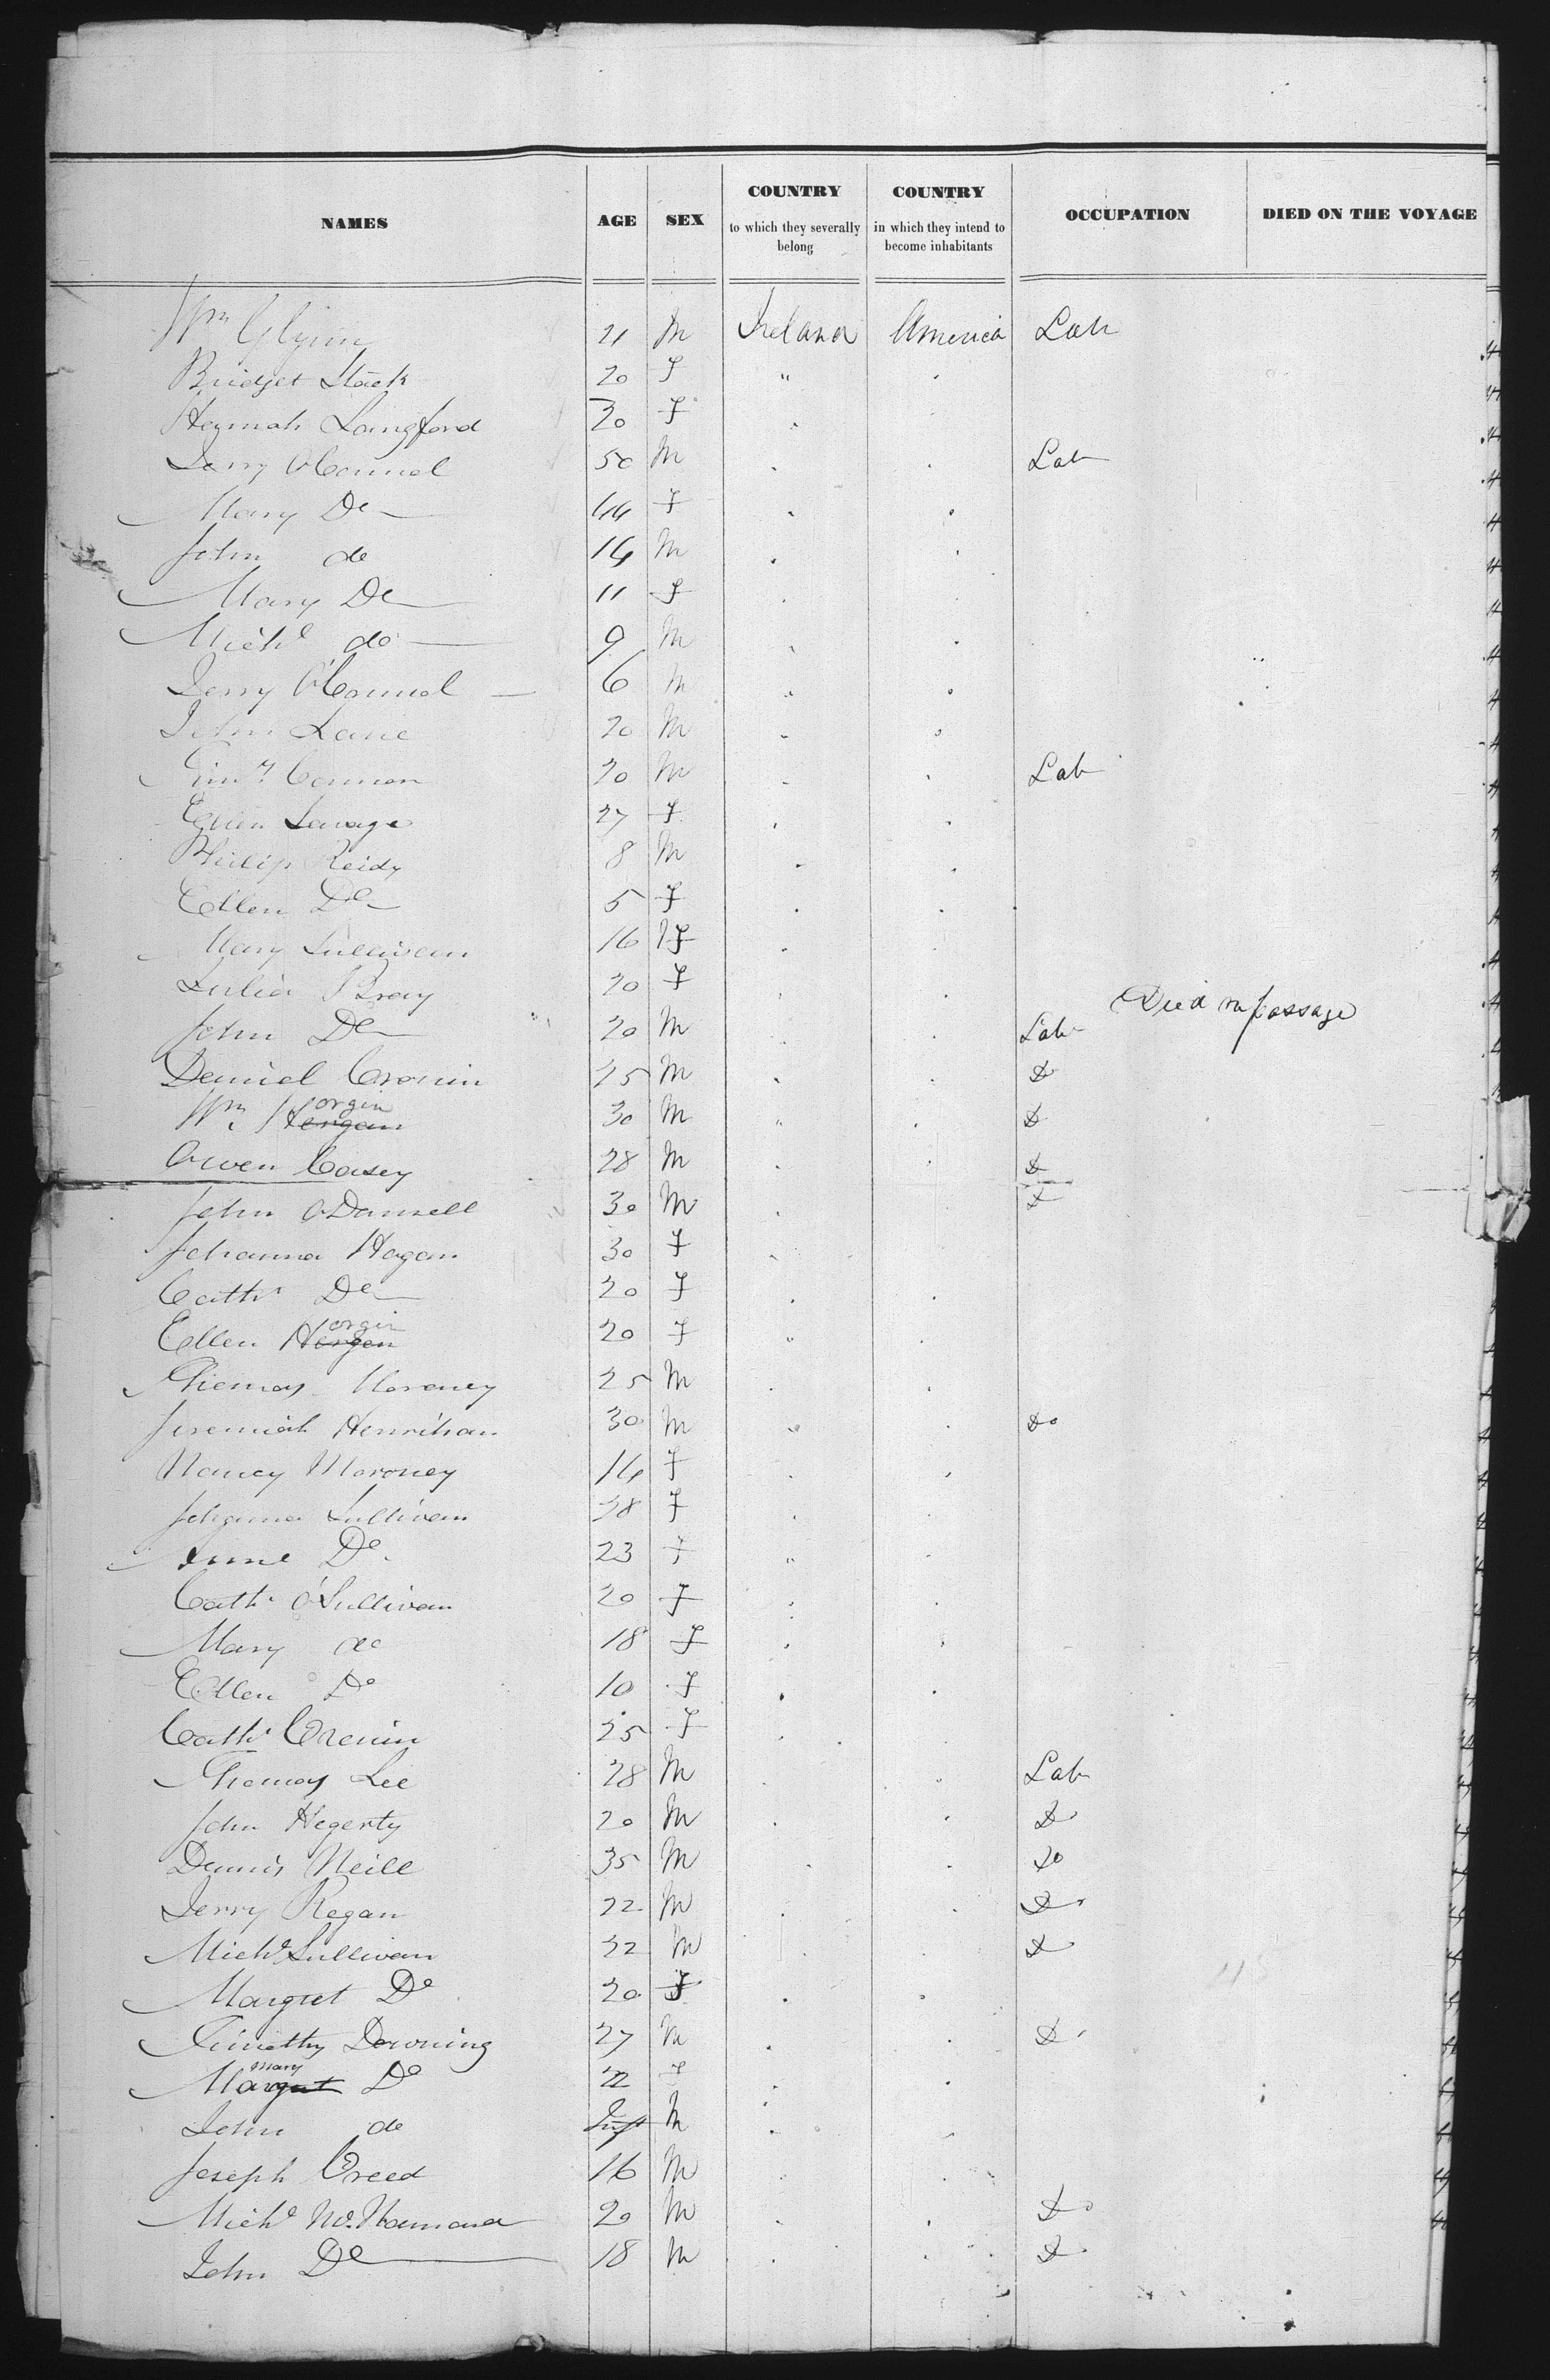 NAMES AGE SEX COUNTRY to which they severally belong COUNTRY in which they intend to become inhabitants OCCUPATION DIED ON THE VOYAGE
Wm Glynn 21 M Ireland America Lab
Bridget Stack 20 f "
Hannah Langford 30 f
Jerry O'Connel 50 M Lab
Mary Do 44 f
John do 14 M
Mary Do 11 f
Michl do 9 M
Jerry O'Connel 6 M
John Lane 20 M
Timy Connor 20 M Lab
Ellen Savage 27 f
Philip Reidy 8 M
Ellen Do 5 f
Mary Sullivan 16 f
Julia Bray 20 f
John Do 20 M Lab Died on passage
Daniel Cronin 25 M Do
Wm Horgan orgin 30 M Do
Owen Casey 28 M Do
John O'Donnell 30 M Do
Johanna Hagan 30 f
Cath Do 20 f
Ellen Horgan orgin 20 f
Thomas Moroney 25 M
Jeremiah Henrihan 30 M Do
Nancy Moroney 14 f
Johanna Sullivan 38 f
Anne Do 23 f
Cath O'Sullivan 20 f
Mary do 18 f
Ellen Do 10 f
Cath Cronin 25 f
Thomas Lee 28 M Lab
John Hegerty 20 M Do
Dennis Neill 35 M Do
Jerry Regan 22 M Do
Michl Sullivan 32 M Do
Margret Do 20 f
Timothy Downing 27 M Do
Margret Mary Do 22 f
John do Inft M
Joseph Creed 16 M
Michl McNamara 20 M Do
John Do 18 M Do